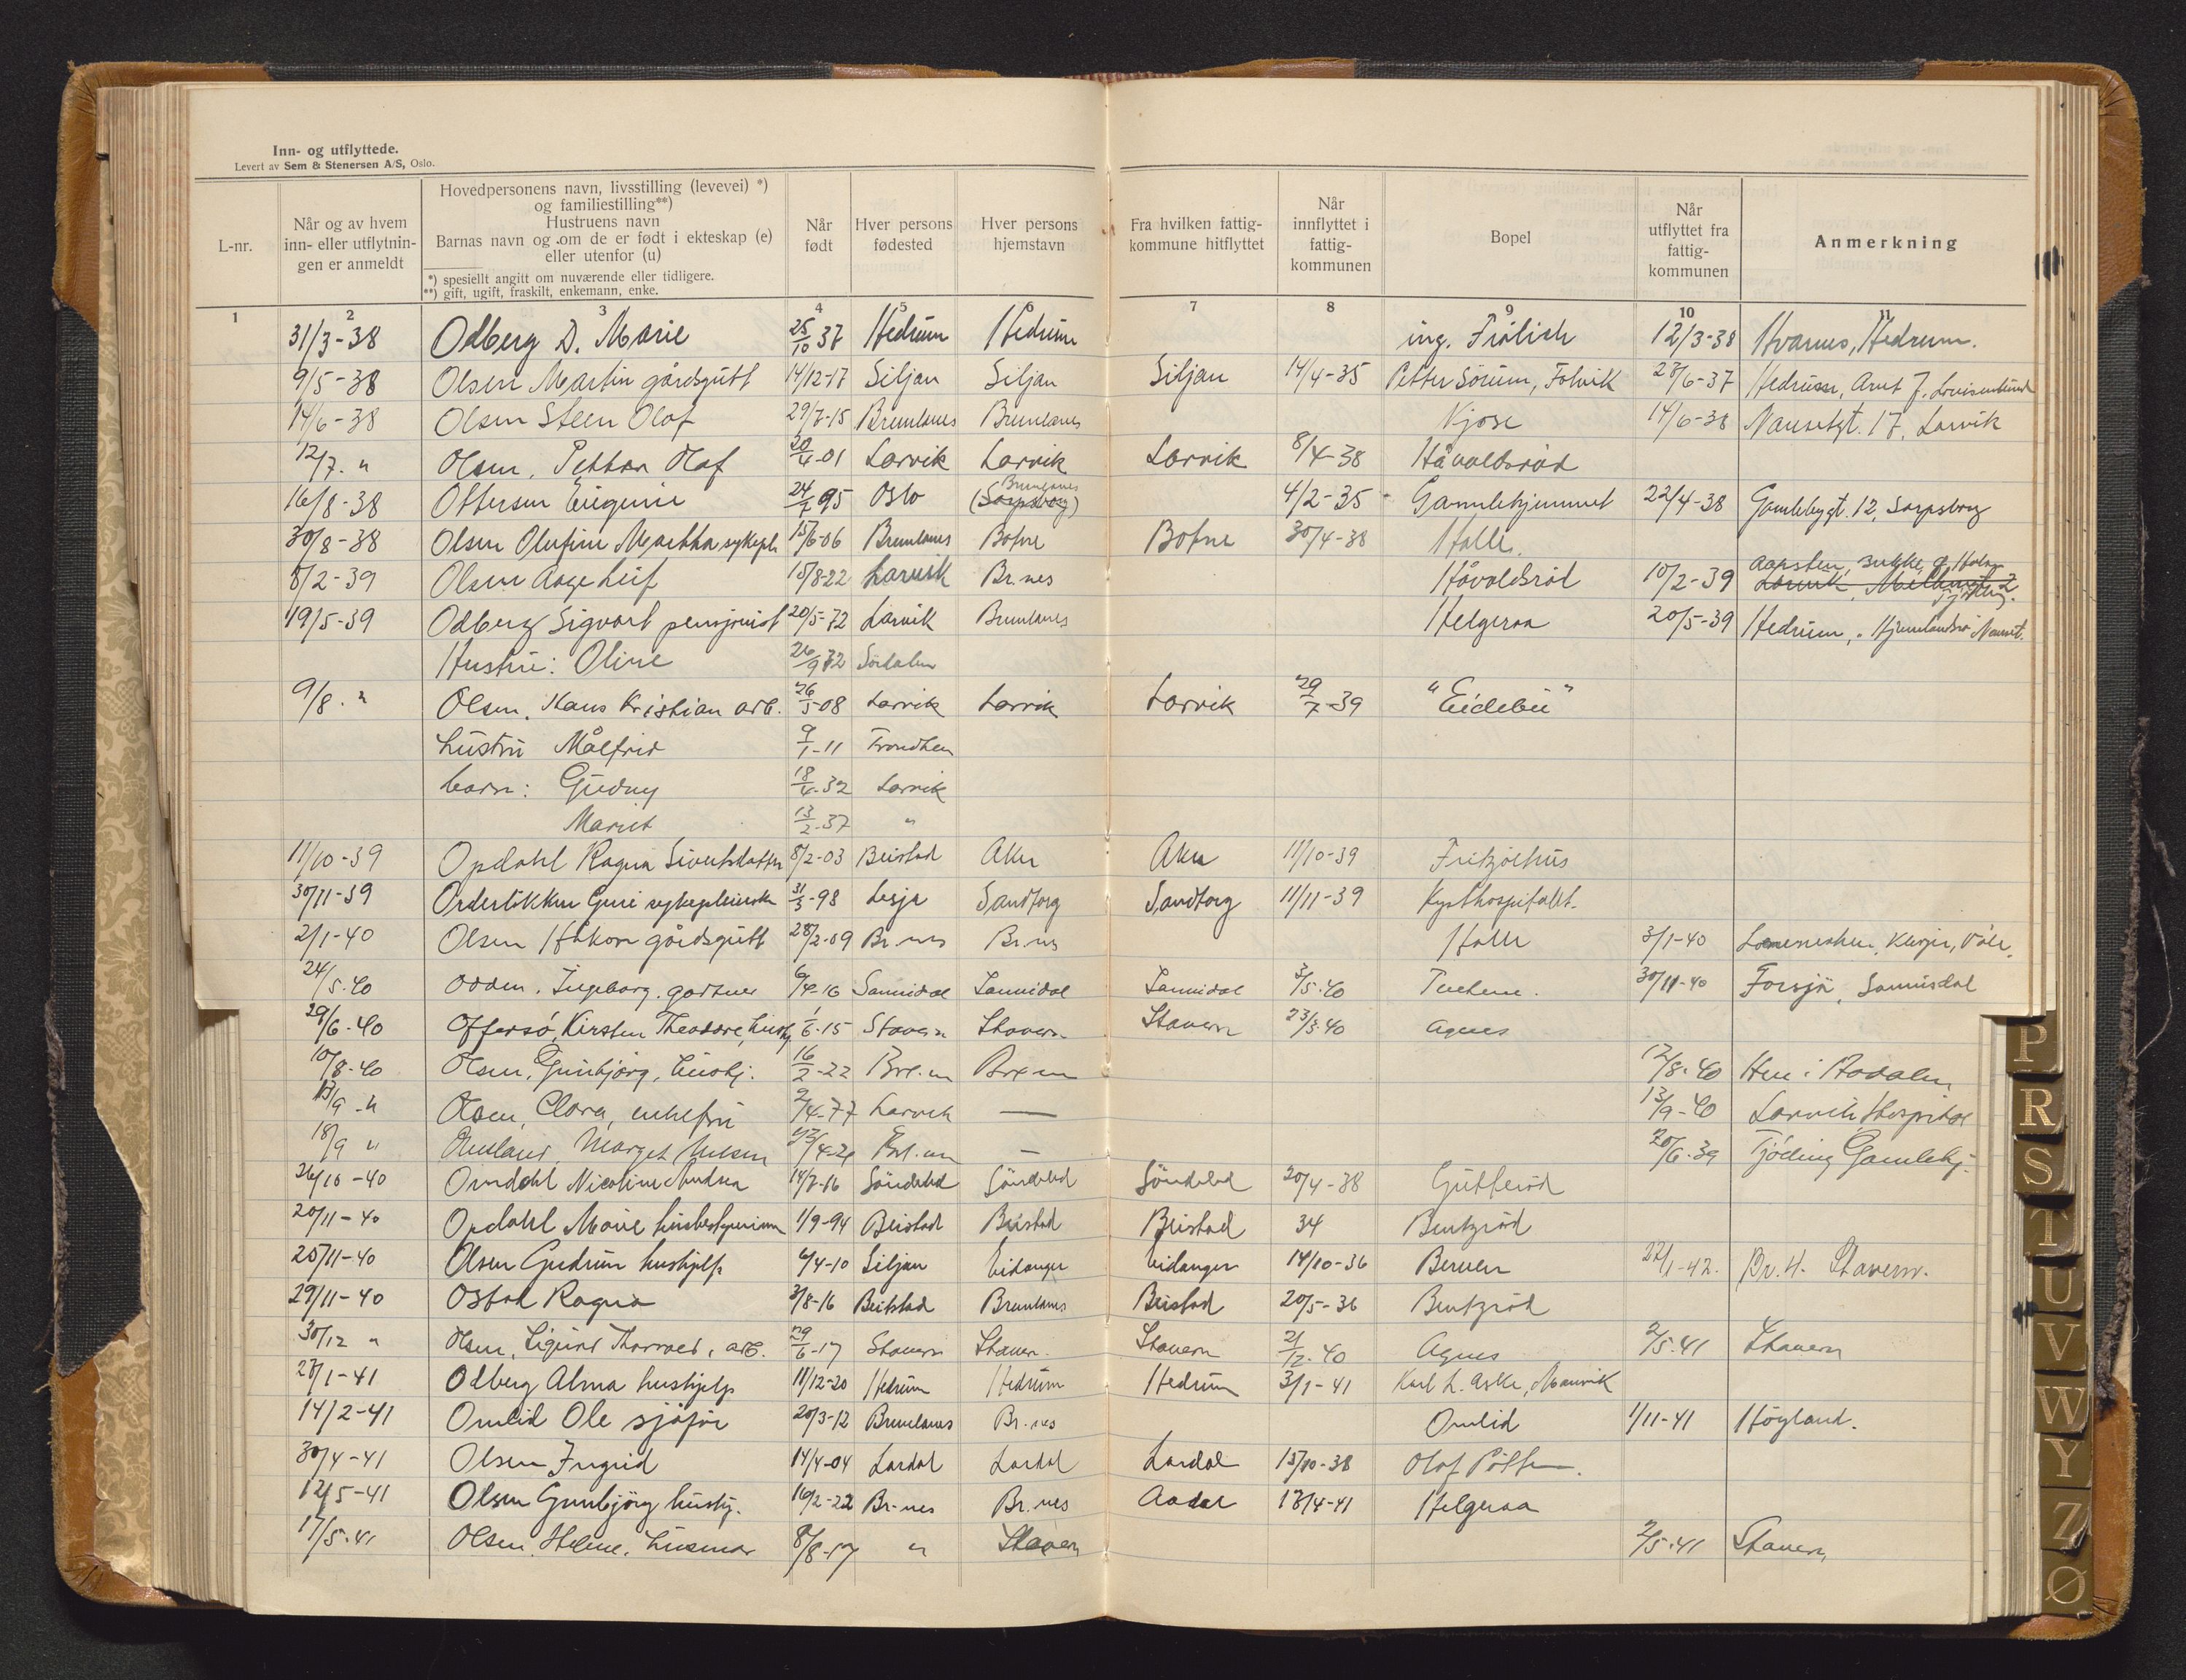 Inn- og utflyttede.
Levert av Sem & Stenersen A/S, Oslo.
L-nr.
Når og av hvem
inn- eller utflytnin-
gen er anmeldt
Hovedpersonens navn, livsstilling (levevei) *)
og familiestilling**)
Hustruens navn
Barnas navn og om de er født i ekteskap (e)
eller utenfor (u)
*) spesiellt angitt om nuværende eller tidligere.
**) gift, ugift, fraskilt, enkemann, enke.
Når
født
Hver persons
fødested
Hver persons
hjemstavn
Fra hvilken fattig-
kommune hitflyttet
Når
innflyttet i
fattig-
kommunen
Bopel
Når
utflyttet fra
fattig-
kommunen
Anmerkning
1 2 3 4 5 6 7 8 9 10 11
31/3-38 Odberg D. Marie 25/10 37 Hedrum Hedrum ing. Frölich 12/3-38 Hvarnes, Hedrum.
9/5-38 Olsen Martin gårdsgutt 14/12-17 Siljan Siljan Siljan 14/4-35 Petter Sörum, Folvik 28/6-37 Hedrum,
14/6-38 Olsen Steen Olaf 29/7-15 Brunlanes Brunlanes Njose 14/6-38 Nansetgt. 17, Larvik
12/7. " Olsen, Petter Olaf 20/4-01 Larvik Larvik Larvik 8/4-38 Håvaldsröd
16/8-38 Ottersen Eugenie 24/7 95 Oslo (Sarpsborg) Brunlanes 4/2-35 Gamlehjemmet 22/4-38 Gamlebygt. 12, Sarpsborg
30/8-38 Olsen Olufine Martha sykepl. 15/6-06 Brunlanes Botne Botne 30/4-38 Halle.
8/2-39 Olsen Aage Leif 15/8-22 Larvik Br.nes Håvaldsröd 10/2-39
19/5-39 Odberg Sigvart pensjonist 20/5-72 Larvik Brunlanes Helgeraa 20/5-39 Hedrum, Nanset.
Hustru: Oline 26/9 72
9/8. " Olsen, Hans Kristian arb. 26/5-08 Larvik Larvik Larvik 29/7-39 "Eidebü"
hustru Målfrid 9/1-11 Trondhem
barn: Gudny 18/4-32 Larvik
Marit 13/2-37 "
11/10-39 Opdahl Ragna Sivertsdatter 8/2-03 Beistad Aker Aker 11/10-39 Fritzöehus
30/11-39 Guri sykepleierske 31/3-98 Lesja Sandtorg Sandtorg 11/11-39 Kysthospitalet.
2/1-40 Olsen Håkon gårdsgutt 28/2-09 Br.nes Br.nes Halle 3/1-40
24/5.40 Odden. Ingeborg. gartner 6/4-16 Sannidal Sannidal Sannidal 3/5.40 30/11-40 Forsjø, Sannidal
29/6-40 Offersö, Kirsten Theodore, hushj. 1/6-15 Stavern Stavern Stavern 23/3.40 Agnes
10/8-40 Olsen, Gunbjörg, hushj. 16/2-22 Br.l.n 12/8.40 Hen i Aadalen
13/9 -" Olsen, Clara, enkefru 2/4-77 Larvik — 13/9-40 Larvik Hospital
18/9 " — 20/6.39 Tjölling Gamlehj.
26/10-40 Omdahl Nicoline Andrea 14/7-16 Söndeled Söndeled Söndeled 20/4-38 Gutteröd
20/11-40 Opdahl Marie husbestyrerinne 1/9-94 Beistad Beistad Beistad 34 Bentzröd
20/11-40 Olsen Gudrun hushjelp 6/4-10 Siljan Eidanger Eidanger 14/10-36 Berven 22/1-42. Br.H. Stavern.
29/11-40 Ostad Ragna 3/8-16 Beitstad Brunlanes Beistad 20/5-36 Bentzröd
30/12 " Olsen, Sigurd Thorvald, arb. 29/6-17 Stavern Stavern. Stavern 21/12-40 Agnes 2/5.41 Stavern
28/1-41 Odberg Alma hushjelp 11/12-20 Hedrum Hedrum Hedrum 3/1-41 Karl L. Aske, Manvik
14/2-41 Omlid Ole sjåför 20/3-12 Brunlanes Br.nes Omlid 1/11-41 Högland.
30/4-41 Olsen Ingrid 14/4-04 Lardal Lardal Lardal 15/10-38
12/5-41 Olsen Gunbjörg hushj. 16/2-22 Br.nes Br.nes Aadal 18/4-41 Helgeraa
17/5.41 Olsen, Helene, husmor 8/8-17 " Stavern 2/5.41 Stavern
P
R
S
T
U
V
W
Y
Z
Ø